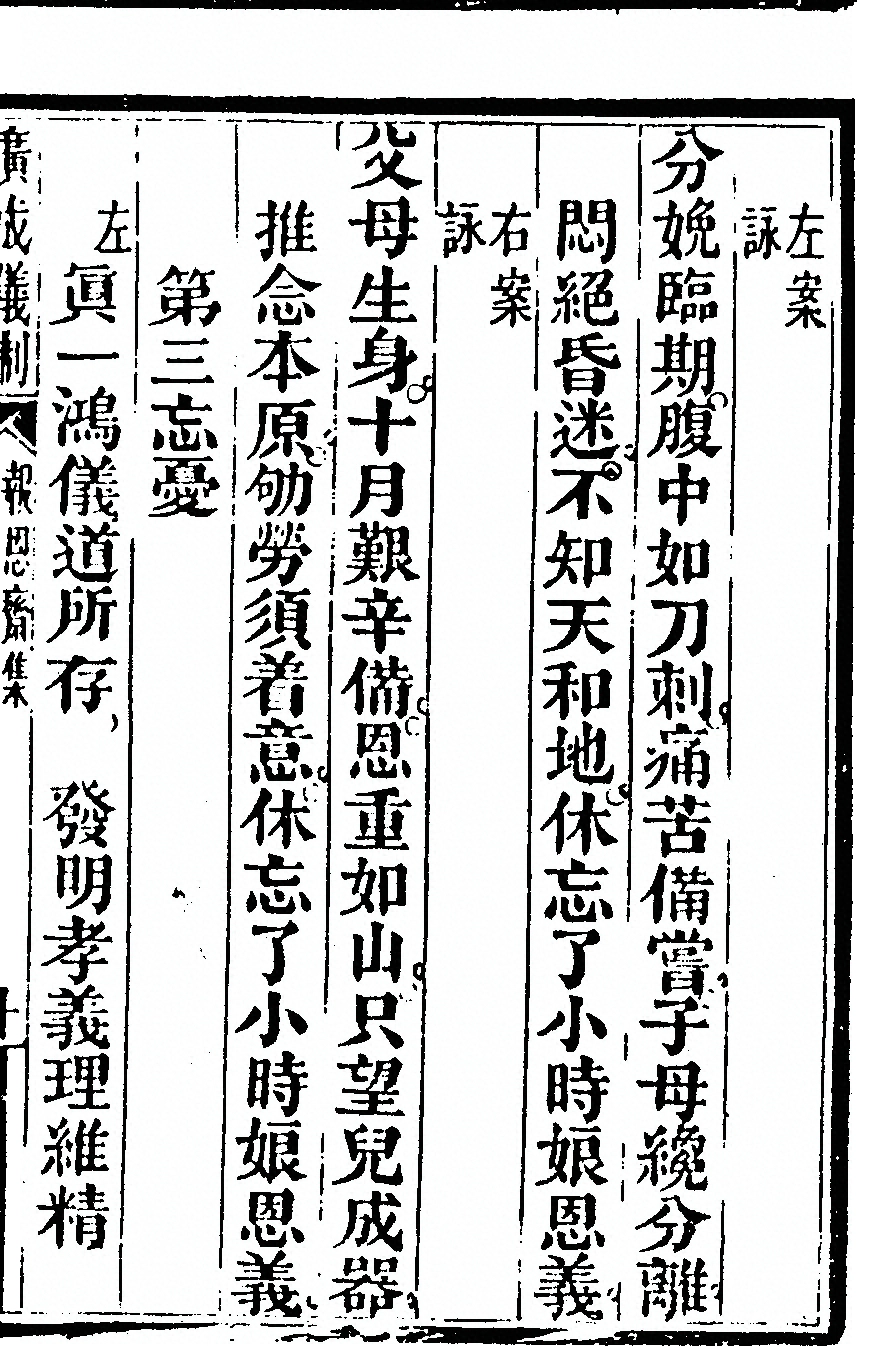 左案
詠
分娩臨期腹中如刀刺痛苦備嘗子母纔分離
悶絕昏迷不知天和地休忘了小時娘恩義
右案
詠
父母生身十月艱辛備恩重如山只望兒成器
推念本原劬勞須着意休忘了小時娘恩義
第三忘憂
左 眞一鴻儀道所存 發明孝義理維精
廣成儀制 報恩齋集